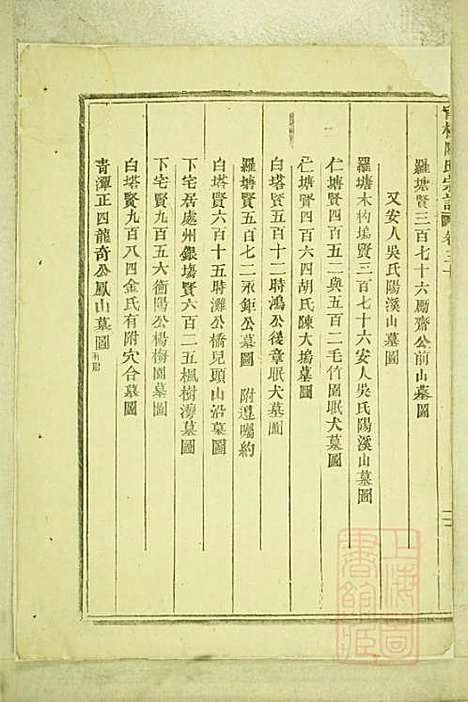 卷三十
羅塘賢三百七十六勵齋公前山墓圖
又安人吳氏陽溪山墓圖
羅塘木杓塢賢三百七十六安人吳氏陽溪山墓圖
仁塘賢四百五二與五百二毛竹園眠犬墓圖
仁塘賢四百六四胡氏陳大塢墓圖
白塔賢五百十二時鴻公後章眠犬墓圖
羅塘賢五百七二永鉅公墓圖 附遺囑約
白塔賢六百十五時灘公橋兒頭山沿墓圖
下宅居處州銀塲賢六百二五楓樹灣墓圖
下宅賢九百五六衡陽公楊梅園墓圖
白塔賢九百八四金氏有附穴合墓圖
青潭正四龍奇公鳳山墓圖
上海圖書館藏